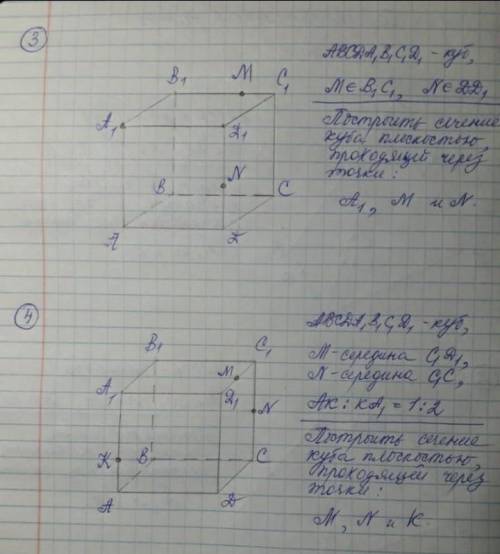 3
ABCDA₁B₁C₁D₁ - куб,
M∈B₁C₁, N∈DD₁
Построить сечение
куба плоскостью,
проходящей через
точки:
A₁, M и N.
B₁ M C₁
A₁ D₁
N
B C
A D
4
ABCDA₁B₁C₁D₁ - куб,
M - середина C₁D₁,
N - середина C₁C,
AK : KA₁ = 1:2
Построить сечение
куба плоскостью,
проходящей через
точки:
M, N и K.
B₁ C₁
M
A₁ D₁
N
K B C
A D